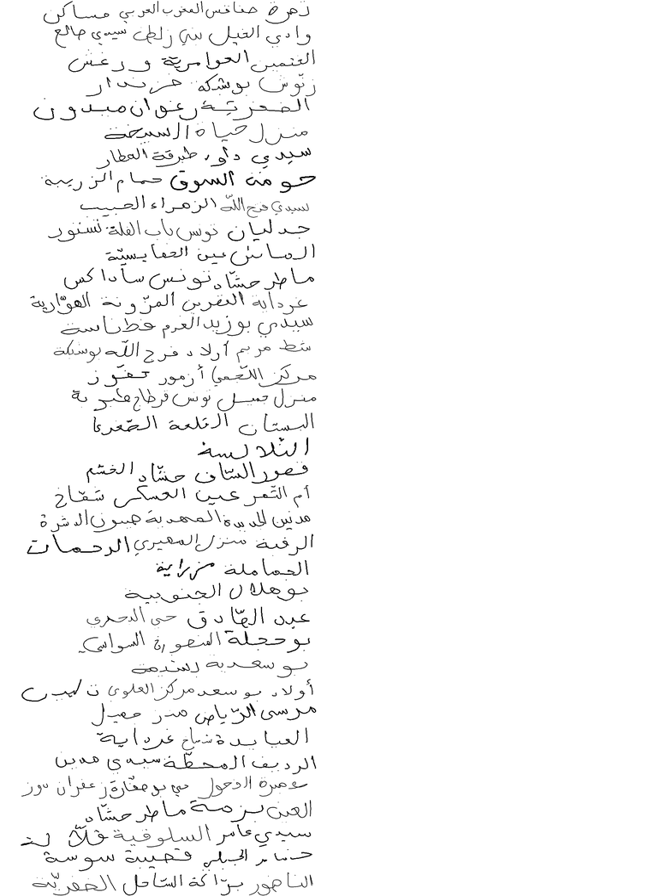 زهرة صفاقس المغرب العربي مساكن
وادي الليل بني زلطن سيدي صالح
الغنمين العوامرية ورغش
زنّوش بوشبكة خزندار
الصخرية رغوان ميدون
منزل حياة السبخة
سيدي داود طبرقة العطار
حومة السوق حمام الزريبة
سيدي فتح اللّه الزهراء الحبيب
جدليان تونس باب الفلة تستور
الماتلين عين الصفايسيّة
ماطر حشّاد تونس ساداكس
غرداية النفرين المزّونة الهوّارية
سيدي بوزيد القرم غطناسة
شط مريم أولاد فرج اللّه بوشبكة
مركز اللّجمي أزمور حفّوز
منزل جميل تونس قرطاج طبربة
البستان القلعة الصّغرى
الثلالسة
قصور السّاف حشّاد الخشم
أم الثّمر عين العسكر شمّاخ
مدنين الجديدة المهدية جبنون الدشرة
الرقبة منزل المهيري الرحمات
الحماملة مزراية
بوهلال الجنوبية
عبد الصّادق حي البحري
بوحجلة المنصورة السواسي
بوسعدية رشيدة
أولاد بوسعد مركز العلوي
مرسى الرّياض منزل جميل
العبايدة شمّاخ غرداية
الرديف المحطّة سيدي مدين
الدخول زعفران دوز
العين بزمة ماطر حشّاد
سيدي عامر السلوقية قلّالة
خنقة الجبلي قصيبة سوسة
الناظور برّاكة السّاحل الجفريّة